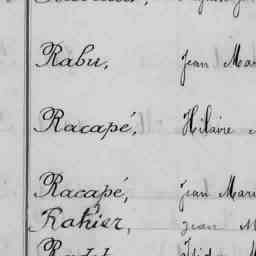 Rabu, Jean Mar
Racapé, Hilaire
Racapé, Jean Mari
Rahier, Jean M